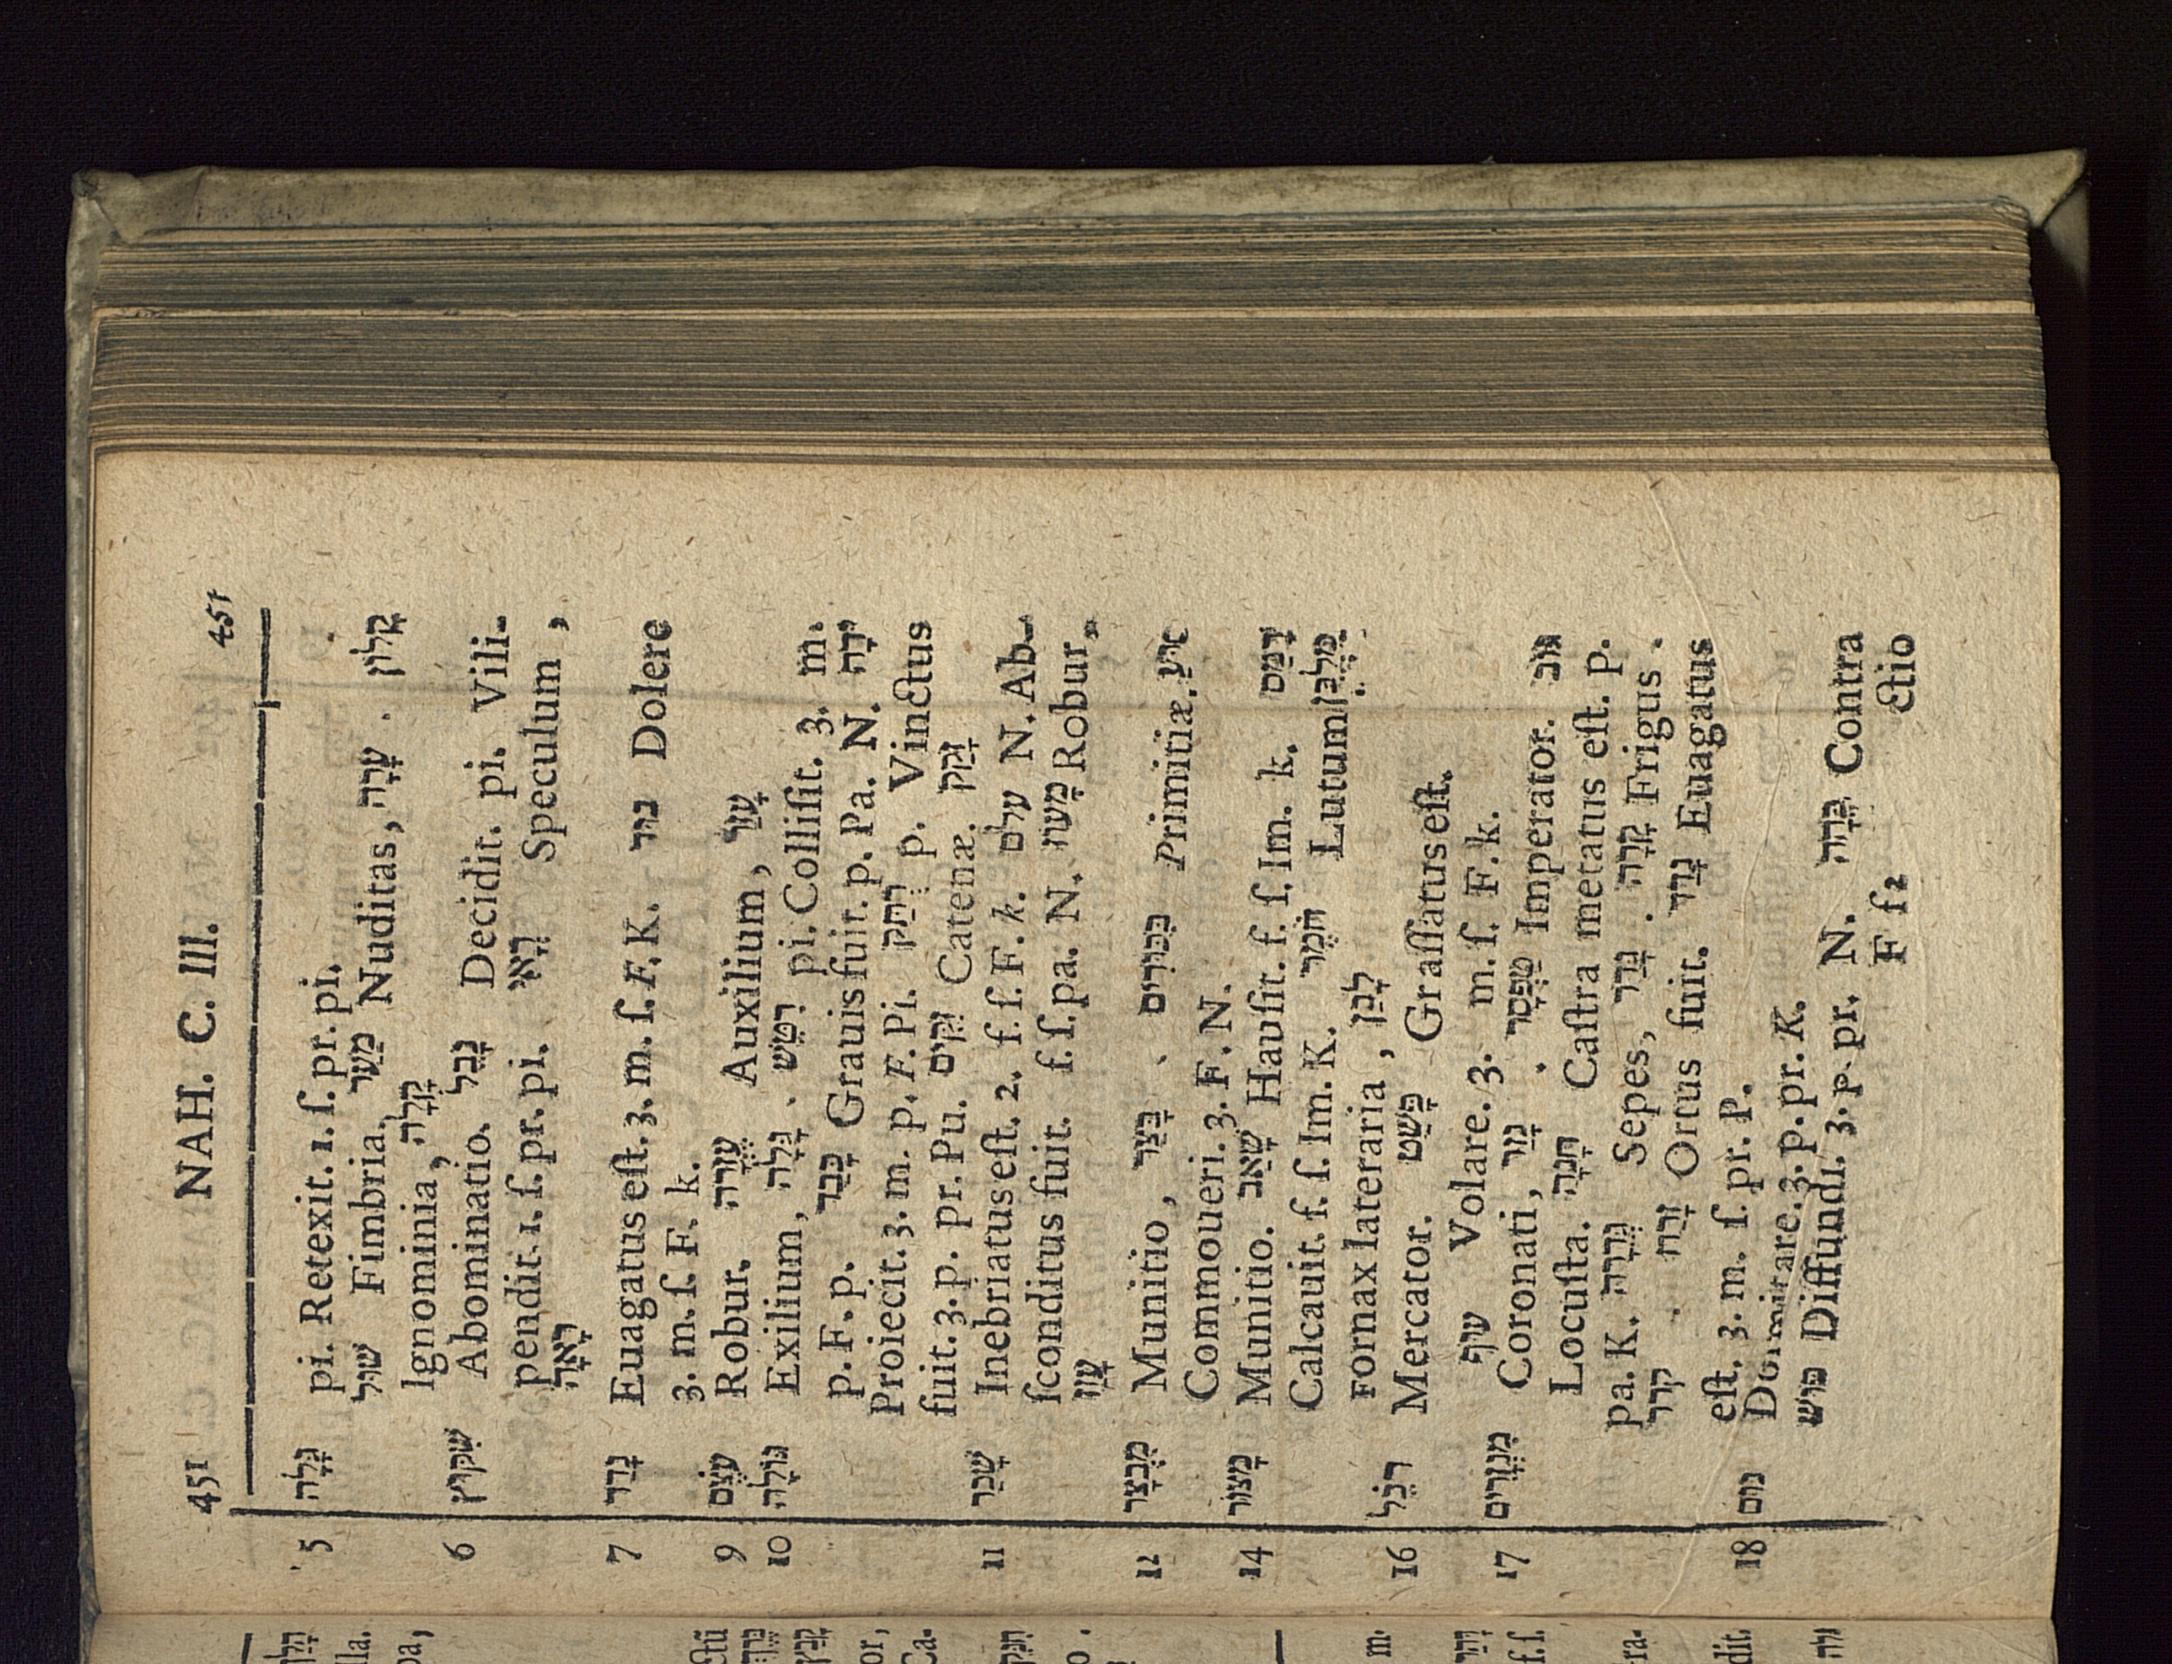 451 NAH. C. III. 451
5 גָּלָה pi. Retexit. 1. ſ. pr. pi.
שׁוּל Fimbria. מַעַר Nuditas, עָרָה . קָלוֹן
Ignominia, קָלָה
6 שִׁקּוּץ Abominatio. נָבֵל Decidit. pi. Vili-
pendit. 1. ſ. pr. pi. רֳאִי Speculum,
רָאָה
7 נָדַד Euagatus eſt. 3. m. ſ. F. K. נוּד Dolere
3. m. ſ. F. k.
9 עֹצֶם Robur. עֶזְרָה Auxilium, עָזַר
10 גּוֹלָה Exilium, גָּלָה . רִטֵּשׁ pi. Colliſit. 3. m.
p. F. p. כָּבֵד Grauis fuit. p. Pa. N. יָדָה
Proiecit. 3. m. p. F. Pi. רָתַק p. Vinctus
fuit. 3. p. pr. Pu. זִקִּים Catenæ. זָקַק
11 שָׁכַר Inebriatus eſt. 2. f. ſ. F. k. עלם N. Ab-
ſconditus fuit. f. ſ. pa. N. מָעוֹז Robur,
עָזַז
12 מִבְצָר Munitio, בָּצַר . בִּכּוּרִים Primitiæ. נוּעַ
Commoueri. 3. F. N.
14 מָצוֹר Munitio. שָׁאַב Hauſit. f. ſ. Im. k. רָמַס
Calcauit. f. ſ. Im. K. חֹמֶר Lutum מַלְבֵּן
Fornax lateraria, לָבַן
16 רֹכֵל Mercator. פָּשַׁט Graſſatus eſt.
עוּף Volare. 3. m. ſ. F. k.
17 מִנְּזָרִים Coronati, נָזַר . טִפְסָר Imperator. גּוֹב
Locuſta. חָנָה Caſtra metatus eſt. p.
pa. K. גְּדֵרָה Sepes, גָּדַר . קָרָה Frigus.
קרר . זָרַח Ortus fuit. נָדַד Euagatus
eſt. 3. m. ſ. pr. P.
18 נוּם Dormitare. 3. p. pr. K.
פּוּשׁ Diffundi. 3. p. pr. N. כֵּהָה Contra
F f 2 ctio